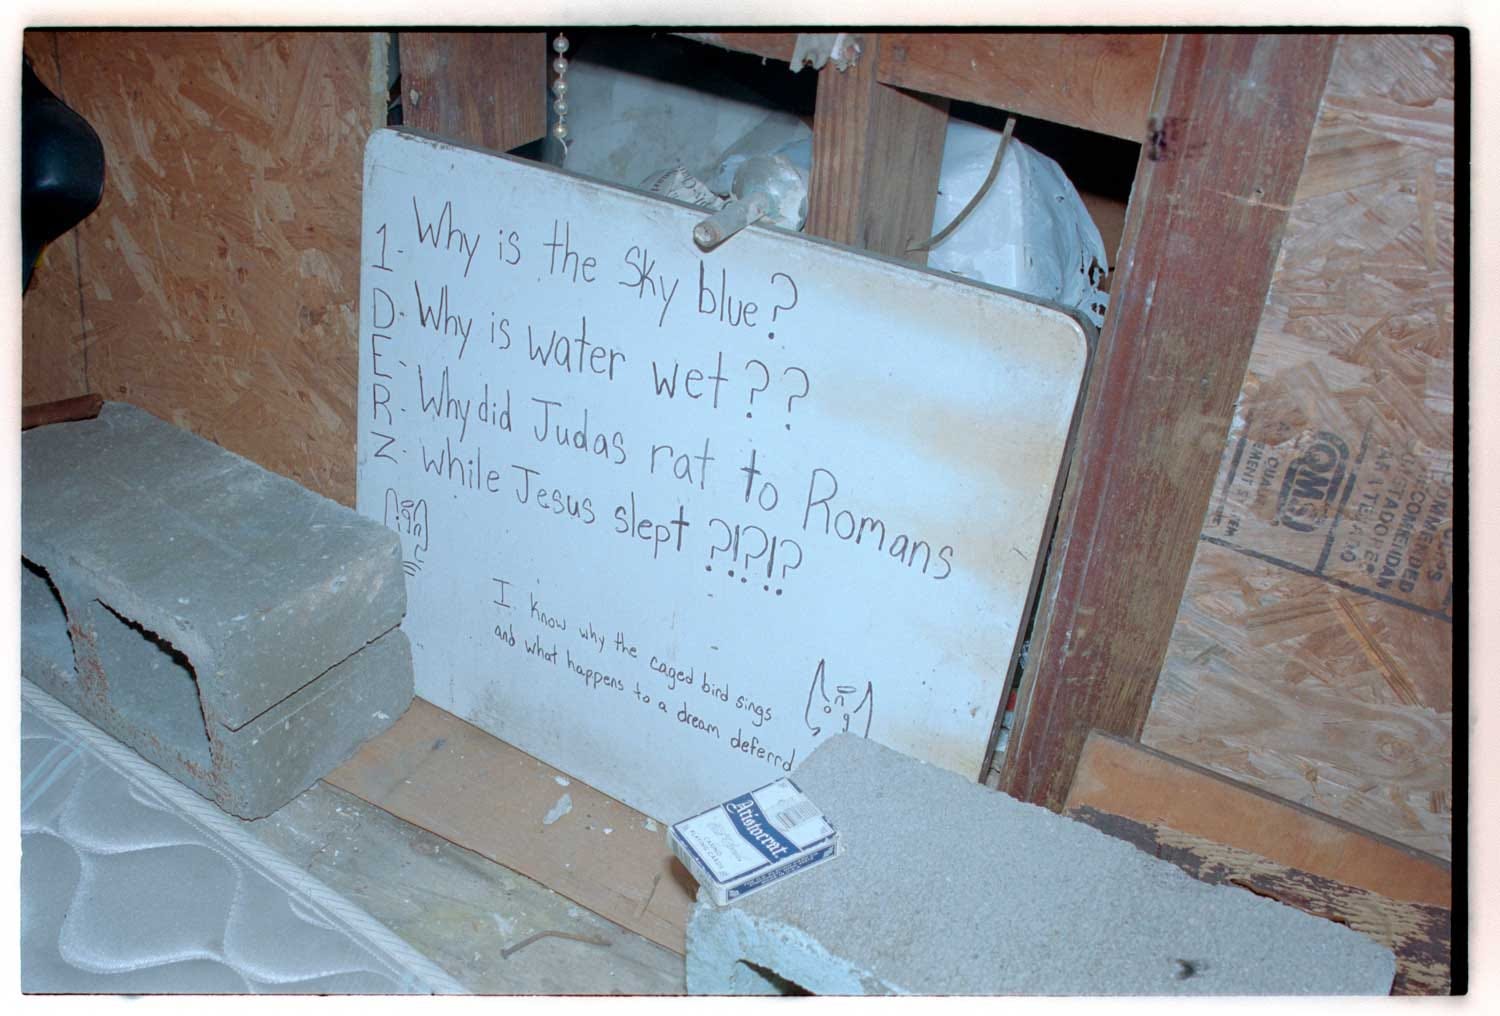 1. Why is the sky blue?
D. Why is water wet??
E.
R. Why did Judas rat to Romans
Z. while Jesus slept ?!?!?
I know why the caged bird sings
and what happens to a dream deferrd
Aristocrat
CASINO
PLAYING CARDS
QMS